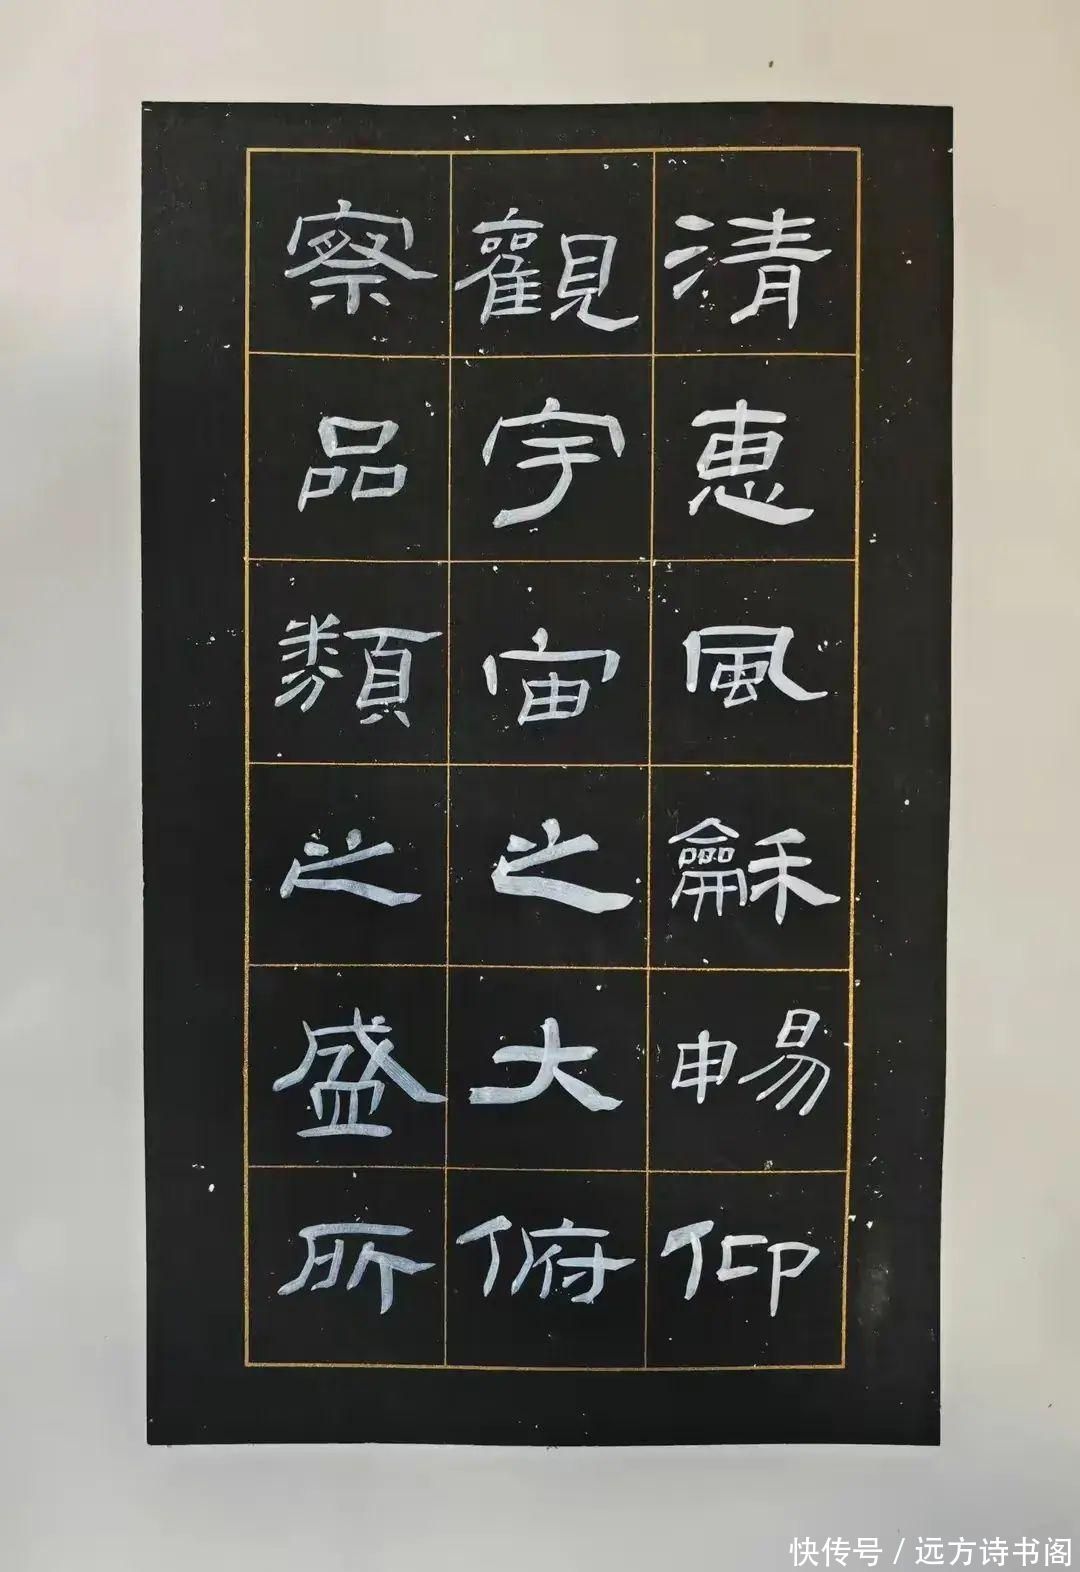 清惠風龢暢仰
觀宇宙之大俯
察品類之盛所
快传号／远方诗书阁